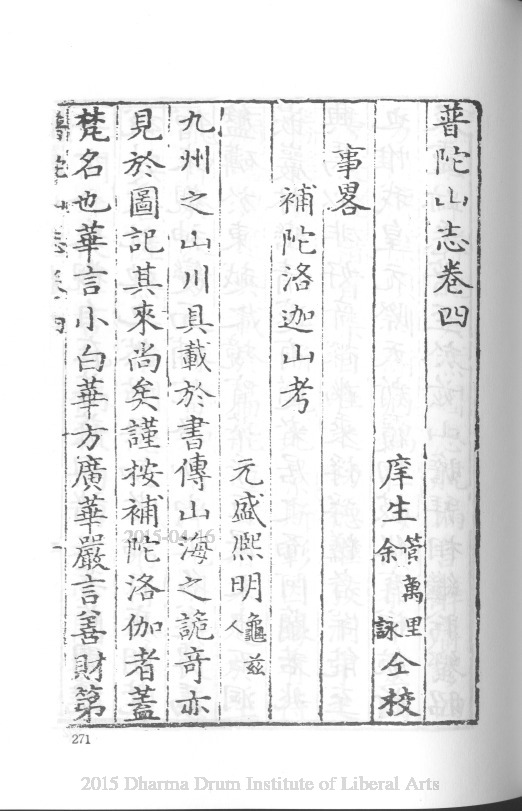 普陀山志卷四
庠生菅萬里余詠仝校
事畧
補陀洛迦山考
元盛熈明龜兹人
九州之山川具載於書傳山海之詭奇亦
見於圖記其來尚矣謹按補陀洛伽者蓋
梵名也華言小白華方廣華嚴言善財第
普陀山志卷四
一
271
2015-04-16
2015 Dharma Drum Institute of Liberal Arts